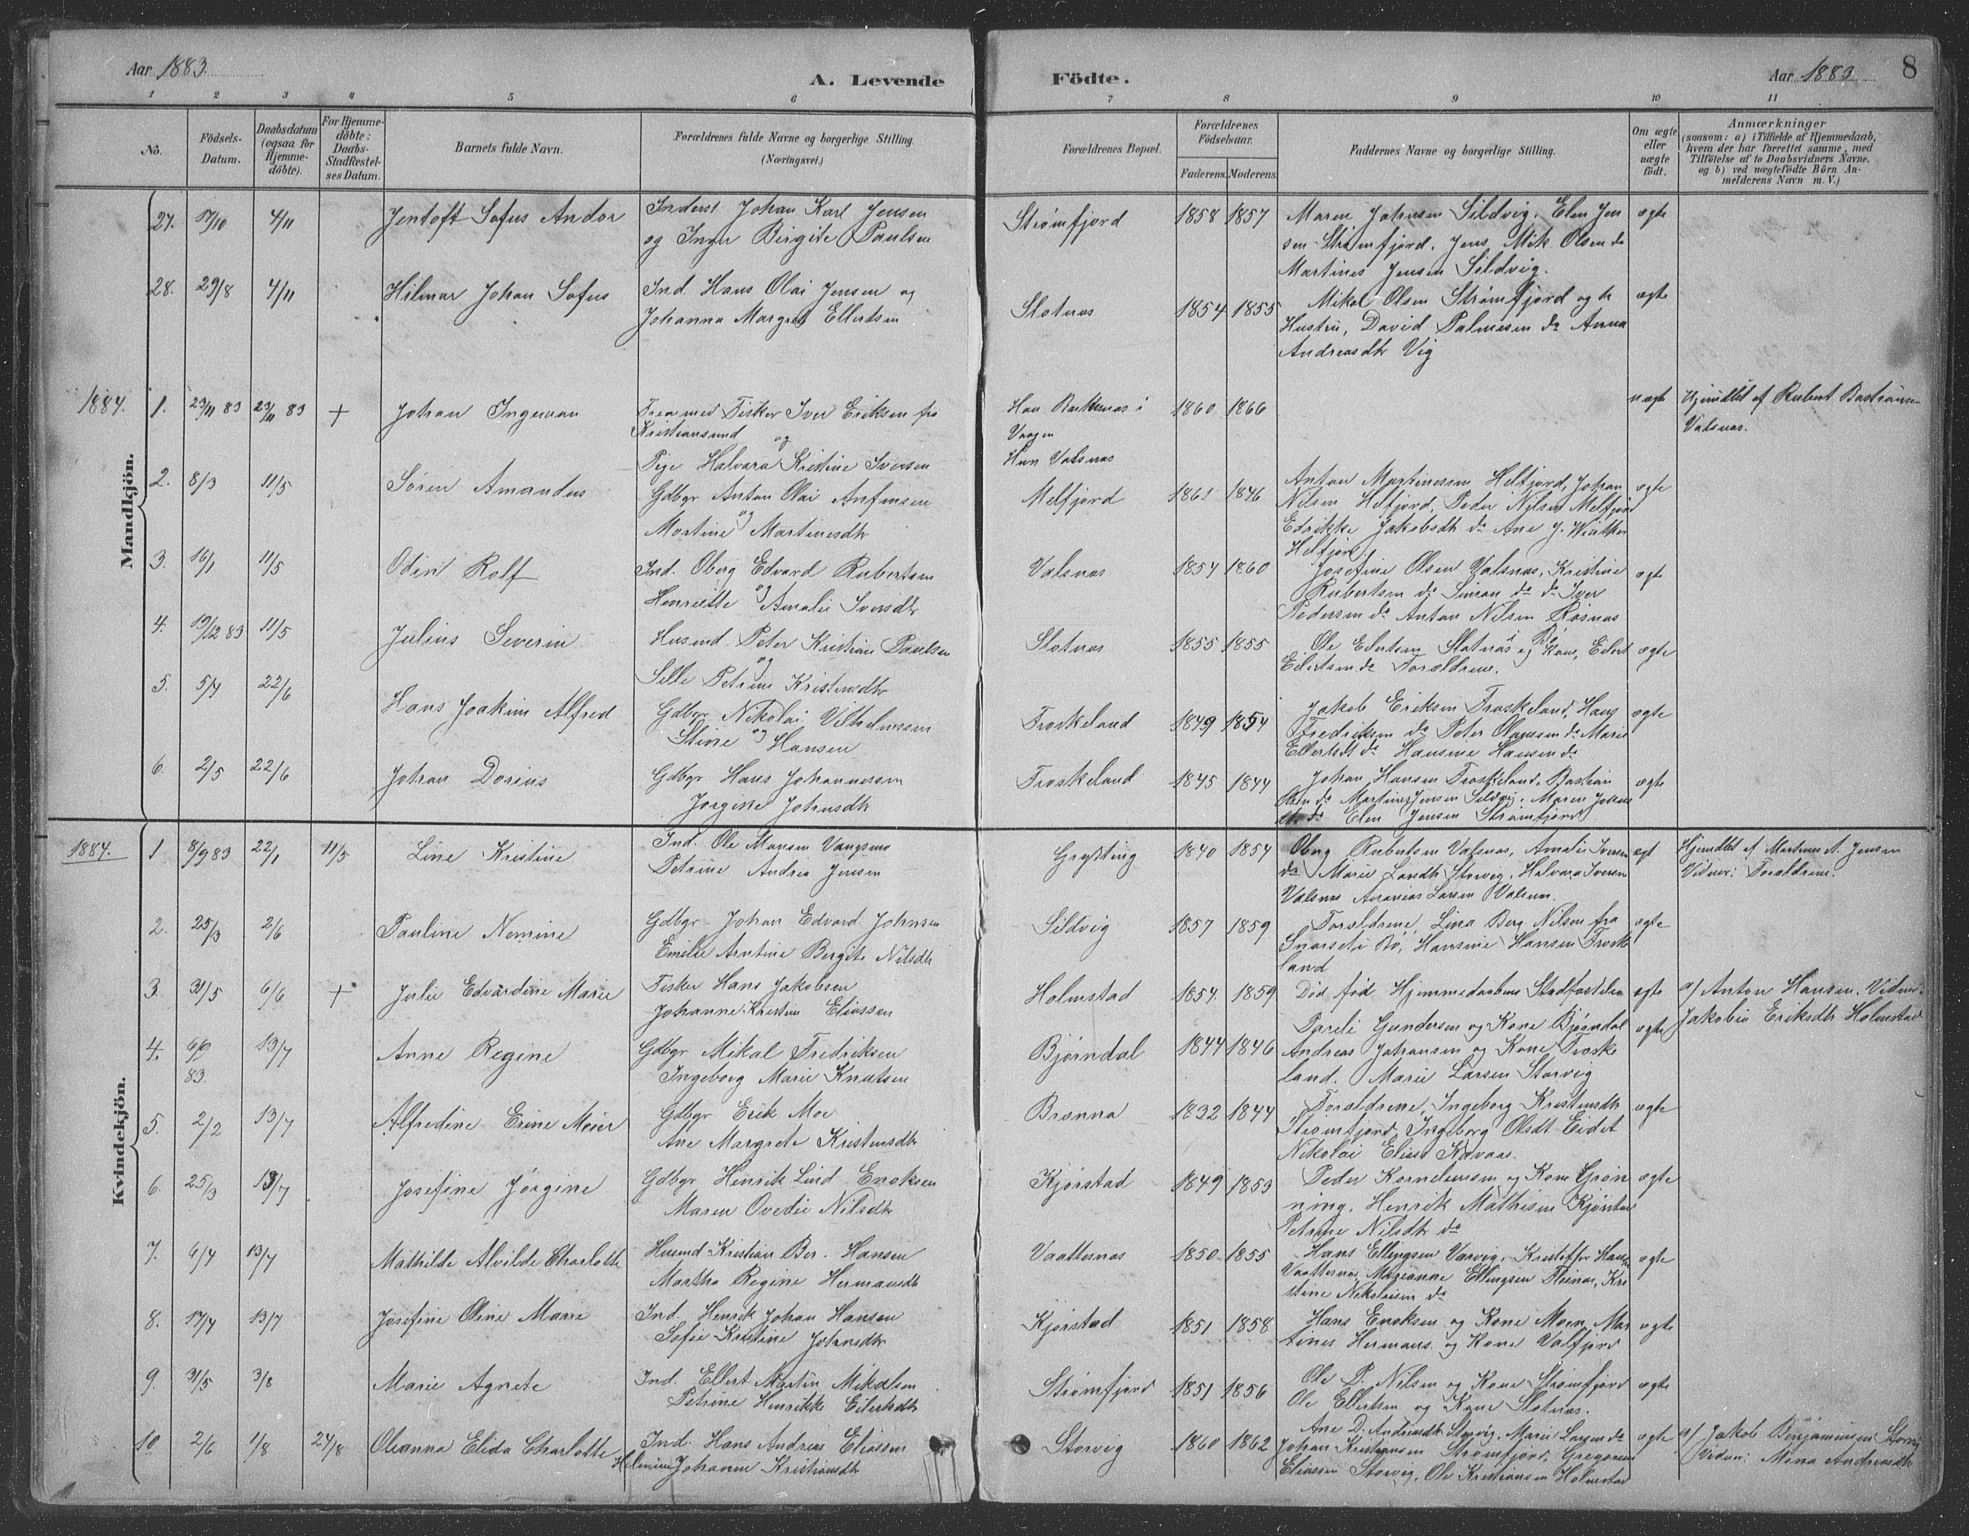 Aar 1883.
A. Levende Födte.
Aar 1883. 8
1 2 3 4 5 6 7 8 9 10 11
No.
Födsels-Datum.
Daabsdatum (ogsaa for Hjemme-döbte).
For Hjemme-döbte: Daabs-Stadfæstel-ses Datum.
Barnets fulde Navn.
Forældrenes fulde Navne og borgerlige Stilling. (Næringsvei.)
Forældrenes Bopæl.
Forældrenes Födselsaar.
Faderens. Moderens.
Faddernes Navne og borgerlige Stilling.
Om ægte eller uægte födt.
Anmærkninger
(saasom: a) i Tilfælde af Hjemmedaab, hvem der har forrettet samme, med Tilföielse af to Daabsvidners Navne, og b) ved uægtefödte Börn An-melderens Navn m. V.)
Mandkjön.
27. 17/10 4/11 Jentoft Sofus Andor
Inderst Johan Karl Jensen
og Inger Birgite Paulsen
Strømfjord 1858 1857
Maren Johnsen Sildvig, Elen Jen
sen Strømfjord, Jens Mik Olsen do
Martines Jensen Sildvig.
ægte
28. 29/8 4/11 Hilmar Johan Sofus
Ind. Hans Olai Jensen og
Johanna Margret Ellertsen
Slotnæs 1854 1855
Mikal Olsen Strømfjord og h
Hustru, David Palmesen do Anna
Andreasdtr Vig
ægte
1884. 1. 23/11 83 23/11 83 + Johan Ingeman
Fisker Iver Eriksen fra
Kristiansund og
Pige Halvara Kristine Iversen
Vaagen
Hun Valsnæs
1860 1866
uægte
Hjemdbt af Rubert Bastiansen
Valsnæs.
2. 8/3 11/5 Søren Amandus
Gdbgr Anton Olai Anfinsen
og
Martine Martinesdtr
Melfjord 1861 1846
Anton Martinessen Helfjord, Johan
Nilsen Helfjord, Peder Nilsen Melfjord
Edrikke Jakobsdtr do Ane J. Winther
Helfjord.
ægte
3. 16/1 11/5 Odin Rolf
Ind. Oberg Edvard Rubertsen
og
Henriette Amalie Iversdtr
Valsnæs 1854 1860
Josefine Olsen Valsnæs, Kristine
Rubertsen do Simon do do Iver
Pedersen do Anton Nilsen Røsnæs
ægte
4. 19/12 83 11/5 Julius Severin
Husmd. Peter Kristian Paulsen
og
Sille Petrine Kristensdtr
Slotnæs 1855 1855
Ole Eilertsen Slotnæs og Kone, Eilert
Eilertsen do Forældrene.
ægte
5. 5/4 22/6 Hans Joakim Alfred
Gdbgr Nikolai Vilhelmsen
og
Stine Hansen
Froskeland 1849 1854
Jakob Eriksen Froskeland, Hans
Fredriksen do Peter Olausen do Marie
Ellertsdt do Hansine Hansen do
ægte
6. 2/5 22/6 Johan Dorius
Gdbgr Hans Johannessen
Jørgine Johnsdtr
Froskeland 1845 1844
Johan Hansen Froskeland, Bastian
Olsen do Martines Jensen Sildvig, Maren Johns
dtr do Elen Jensen Strømfjord
ægte
Kvindekjön.
1884. 1 8/9 83 22/1 11/5 Line Kristine
Ind. Ole Monsen Vangsnes
Petrine Andrea Jensen
Grytting 1840 1854
Oberg Rubertsen Valsnæs, Amalie Iversen
do Marie Larsdtr Storvig, Halvara Iversen
Valsnæs Ananias Larsen Valsnæs.
ægt
Hjemdbt af Martines A. Jensen
Vidner: Forældrene.
2. 25/3 2/6 Pauline Nomine
Gdbgr Johan Edvard Johnsen
Emelie Arntine Bergite Nilsdtr
Sildvig 1857 1859
Forældrene, Lina Berg Nilsen fra
Snarset i Bø, Hansine Hansen Froske
land
ægte
3. 31/5 6/6 + Julie Edvardine Marie
Fisker Hans Jakobsen
Johanne Kristine Eliassen
Holmstad 1854 1859
Død, før Hjemmedaabens Stadfæstelse
ægte
a) Anton Hansen. Vidner:
Jakobie Eriksdtr Holmstad
4. 6/9 83. 13/7 Anne Regine
Gdbgr Mikal Fredriksen
Ingeborg Marie Knutsen
Bjørndal 1844 1846
Pareli Gundersen og Kone Bjørndal
Andreas Johansen og Kone Froske
land. Marie Larsen Storvig
ægte
5. 2/2 13/7 Alfredine Erine Meier
Gdbgr Erik Moe
Ane Margrete Kristensdtr
Brænna 1832 1844
Forældrene, Ingeborg Kristensdtr
Strømfjord, Ingeborg Olsdt Eidet
Nikolai Elias
ægte
6. 25/3 13/7 Josefine Jørgine
Gdbgr Henrik Lind Enoksen
Maren Ovedie Nilsdtr
Kjørstad 1849 1853
Peder Korneliussen og Kone Grøn
ning, Henrik Mathisen Kjørstad
Petrine Nilsdtr do
ægte
7. 6/4 13/7 Mathilde Alvilde Charlotte
Husmd Kristian Ber. Hansen
Martha Regine Hermansdtr
Vaatternæs 1850. 1855
Hans Ellingsen Varvig, Kristoffer Hansen
Vaatternæs, Marianne Ellingsen Theinæs, Kri
stine Nikolaisen do
ægte
8. 17/4 13/7 Josefine Oline Marie
Ind. Henrik Johan Hansen
Sofie Kristine Johansdtr
Kjørstad 1851 1858
Hans Enoksen og Kone Moen, Mar
tines Hermans. og Kone Valfjord
ægte
9. 31/5 3/8 Marie Agnete
Ind. Ellert Martin Mikalsen
Petrine Henrikke Eilertsdtr
Strømfjord 1851 1856
Ole P. Nilsen og Kone Strømfjord
Ole Ellertsen og Kone Slotnæs.
ægte
10. 2/6 1/8 24/8 Oleanna Elida Charlotte Helmine
Ind. Hans Andreas Eliassen
Johanne Kristiansdtr
Storvig 1860 1862
Ane D. Andreasdtr Storvig, Marie Larsen do
Johan Kristiansen Strømfjord, Gregorius
Eliassen Storvig, Ole Kristiansen Holmstad
ægte
a) Jakob Benjaminsen Storvig
Vidner: Mina Andreasdtr